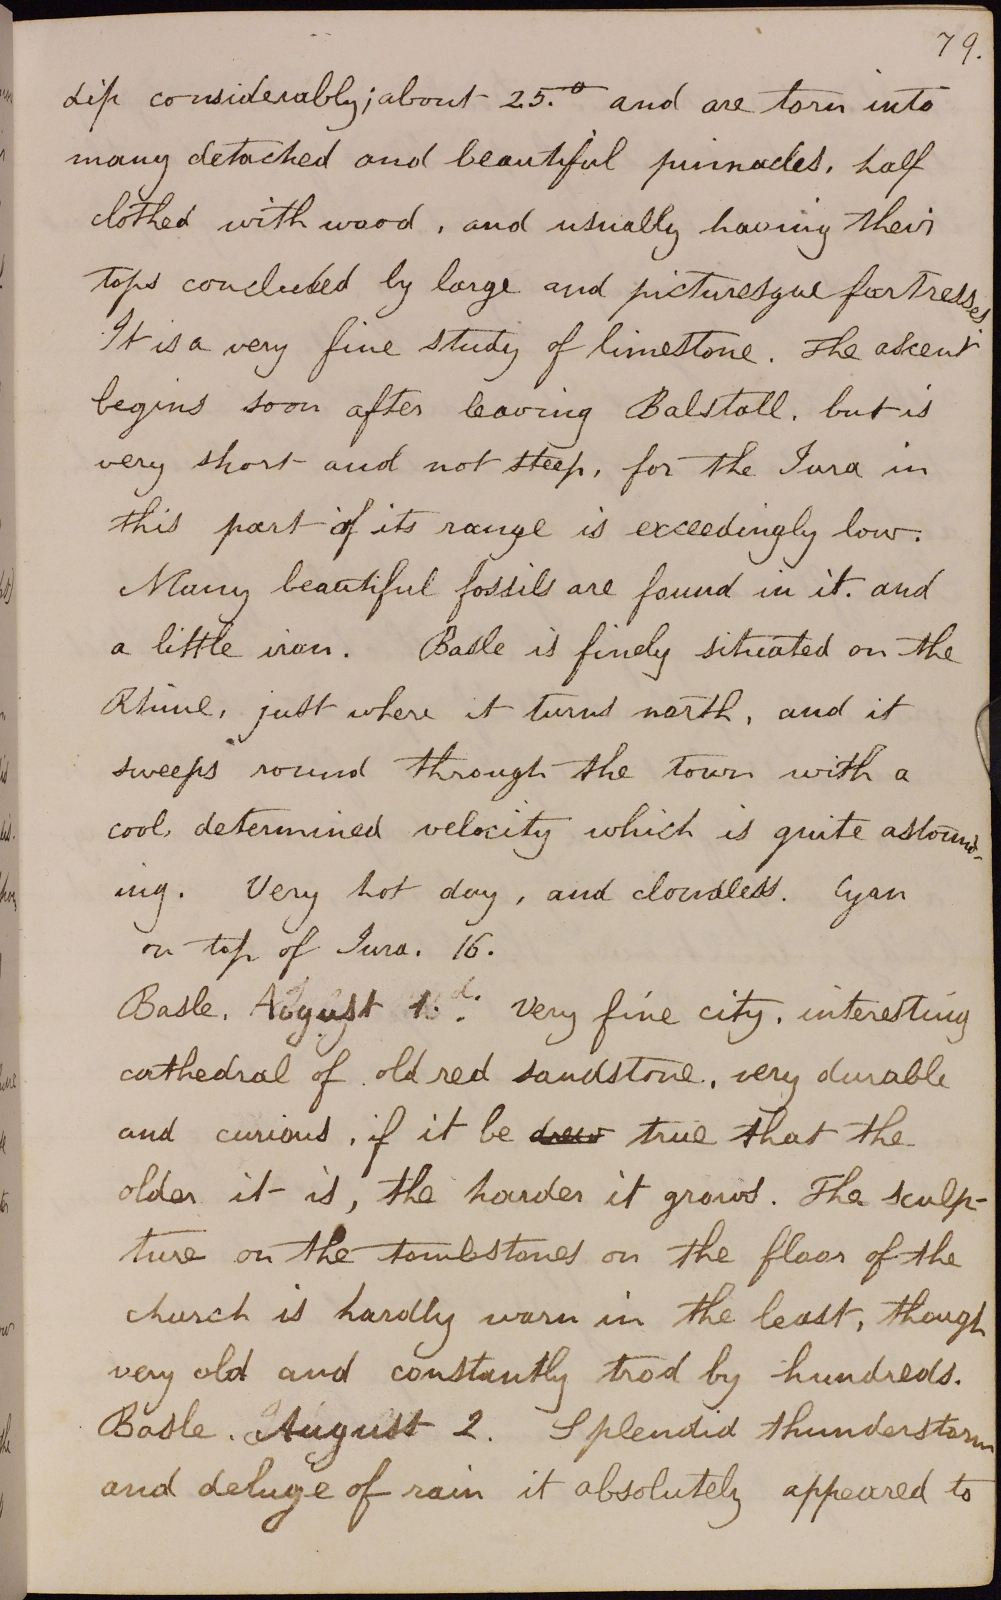 79.
dip considerably; about 25.° and are torn into
many detached and beautiful pinnacles, half
clothed with wood, and usually having their
tops concluded by large and picturesque fortresses
It is a very fine study of limestone. The ascent
begins soon after leaving Balstall. but is
very short and not steep, for the Jura in
this part of its range is exceedingly low.
Many beautiful fossils are found in it. and
a little iron. Basle is finely situated on the
Rhine, just where it turns north, and it
sweeps round through the town with a
cool, determined velocity which is quite astound-
ing. Very hot day, and cloudless. Cyan
on top of Jura. 16.
Basle. August 1. Very fine city, interesting
cathedral of old red sandstone, very durable
and curious, if it be true that the
older it is, the harder it grows. The sculp-
ture on the tombstones on the floor of the
church is hardly worn in the least, though
very old and constantly trod by hundreds.
Basle. August 2. Splendid thunderstorm
and deluge of rain it absolutely appeared to